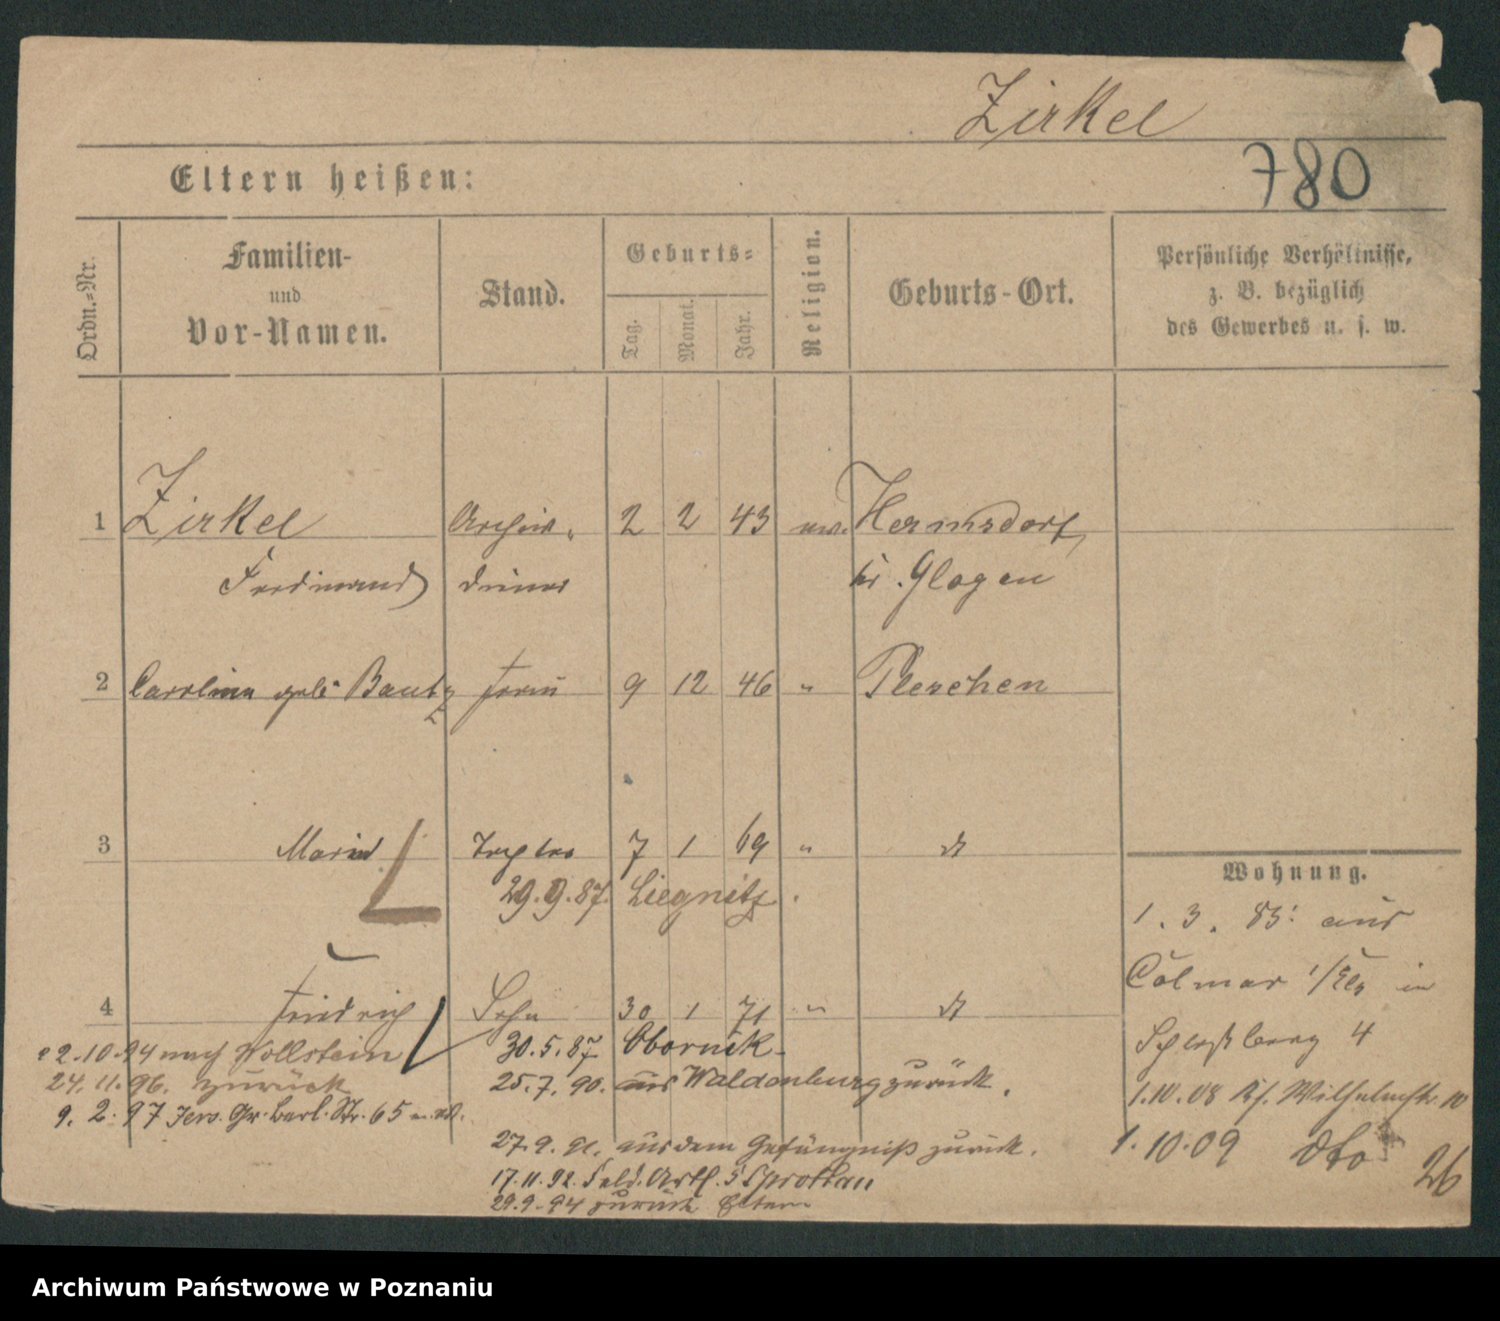 Zirkel
780
Eltern heißen:
Ordn.-Nr.
Familien-
und
Vor-Namen.
Stand.
Geburts-
Tag.
Monat.
Jahr.
Religion.
Geburts-Ort.
Persönliche Verhältnisse,
z. B. bezüglich
des Gewerbes u. s. w.
1 Zirkel Archiv- 2 2 43 Hermsdorf
Ferdinand diener Glogau
2 Caroline geb. Bautz Frau 9 12 46 " Pleschen
3 Marie Tochter 7 1 69 " dt
29.9.87. Liegnitz.
4 Friedrich Sohn 30 1 71 " dt
30.5.87 Obornik.
25.7.90. aus Waldenburg zurück.
27.9.91. aus dem Gefängniß zurück.
17.11.92. Feld. Artl. 5 Sprottau
29.9.94 zurück Eltern
2.10.94 nach Wollstein
24.11.96. zurück
9.2.97 Gr. Berl. Str. 65
Wohnung.
1.3.83: aus
Colmar in
Schloßberg 4
1.10.08 Wilhelmstr. 10
1.10.09 dto
26
Archiwum Państwowe w Poznaniu